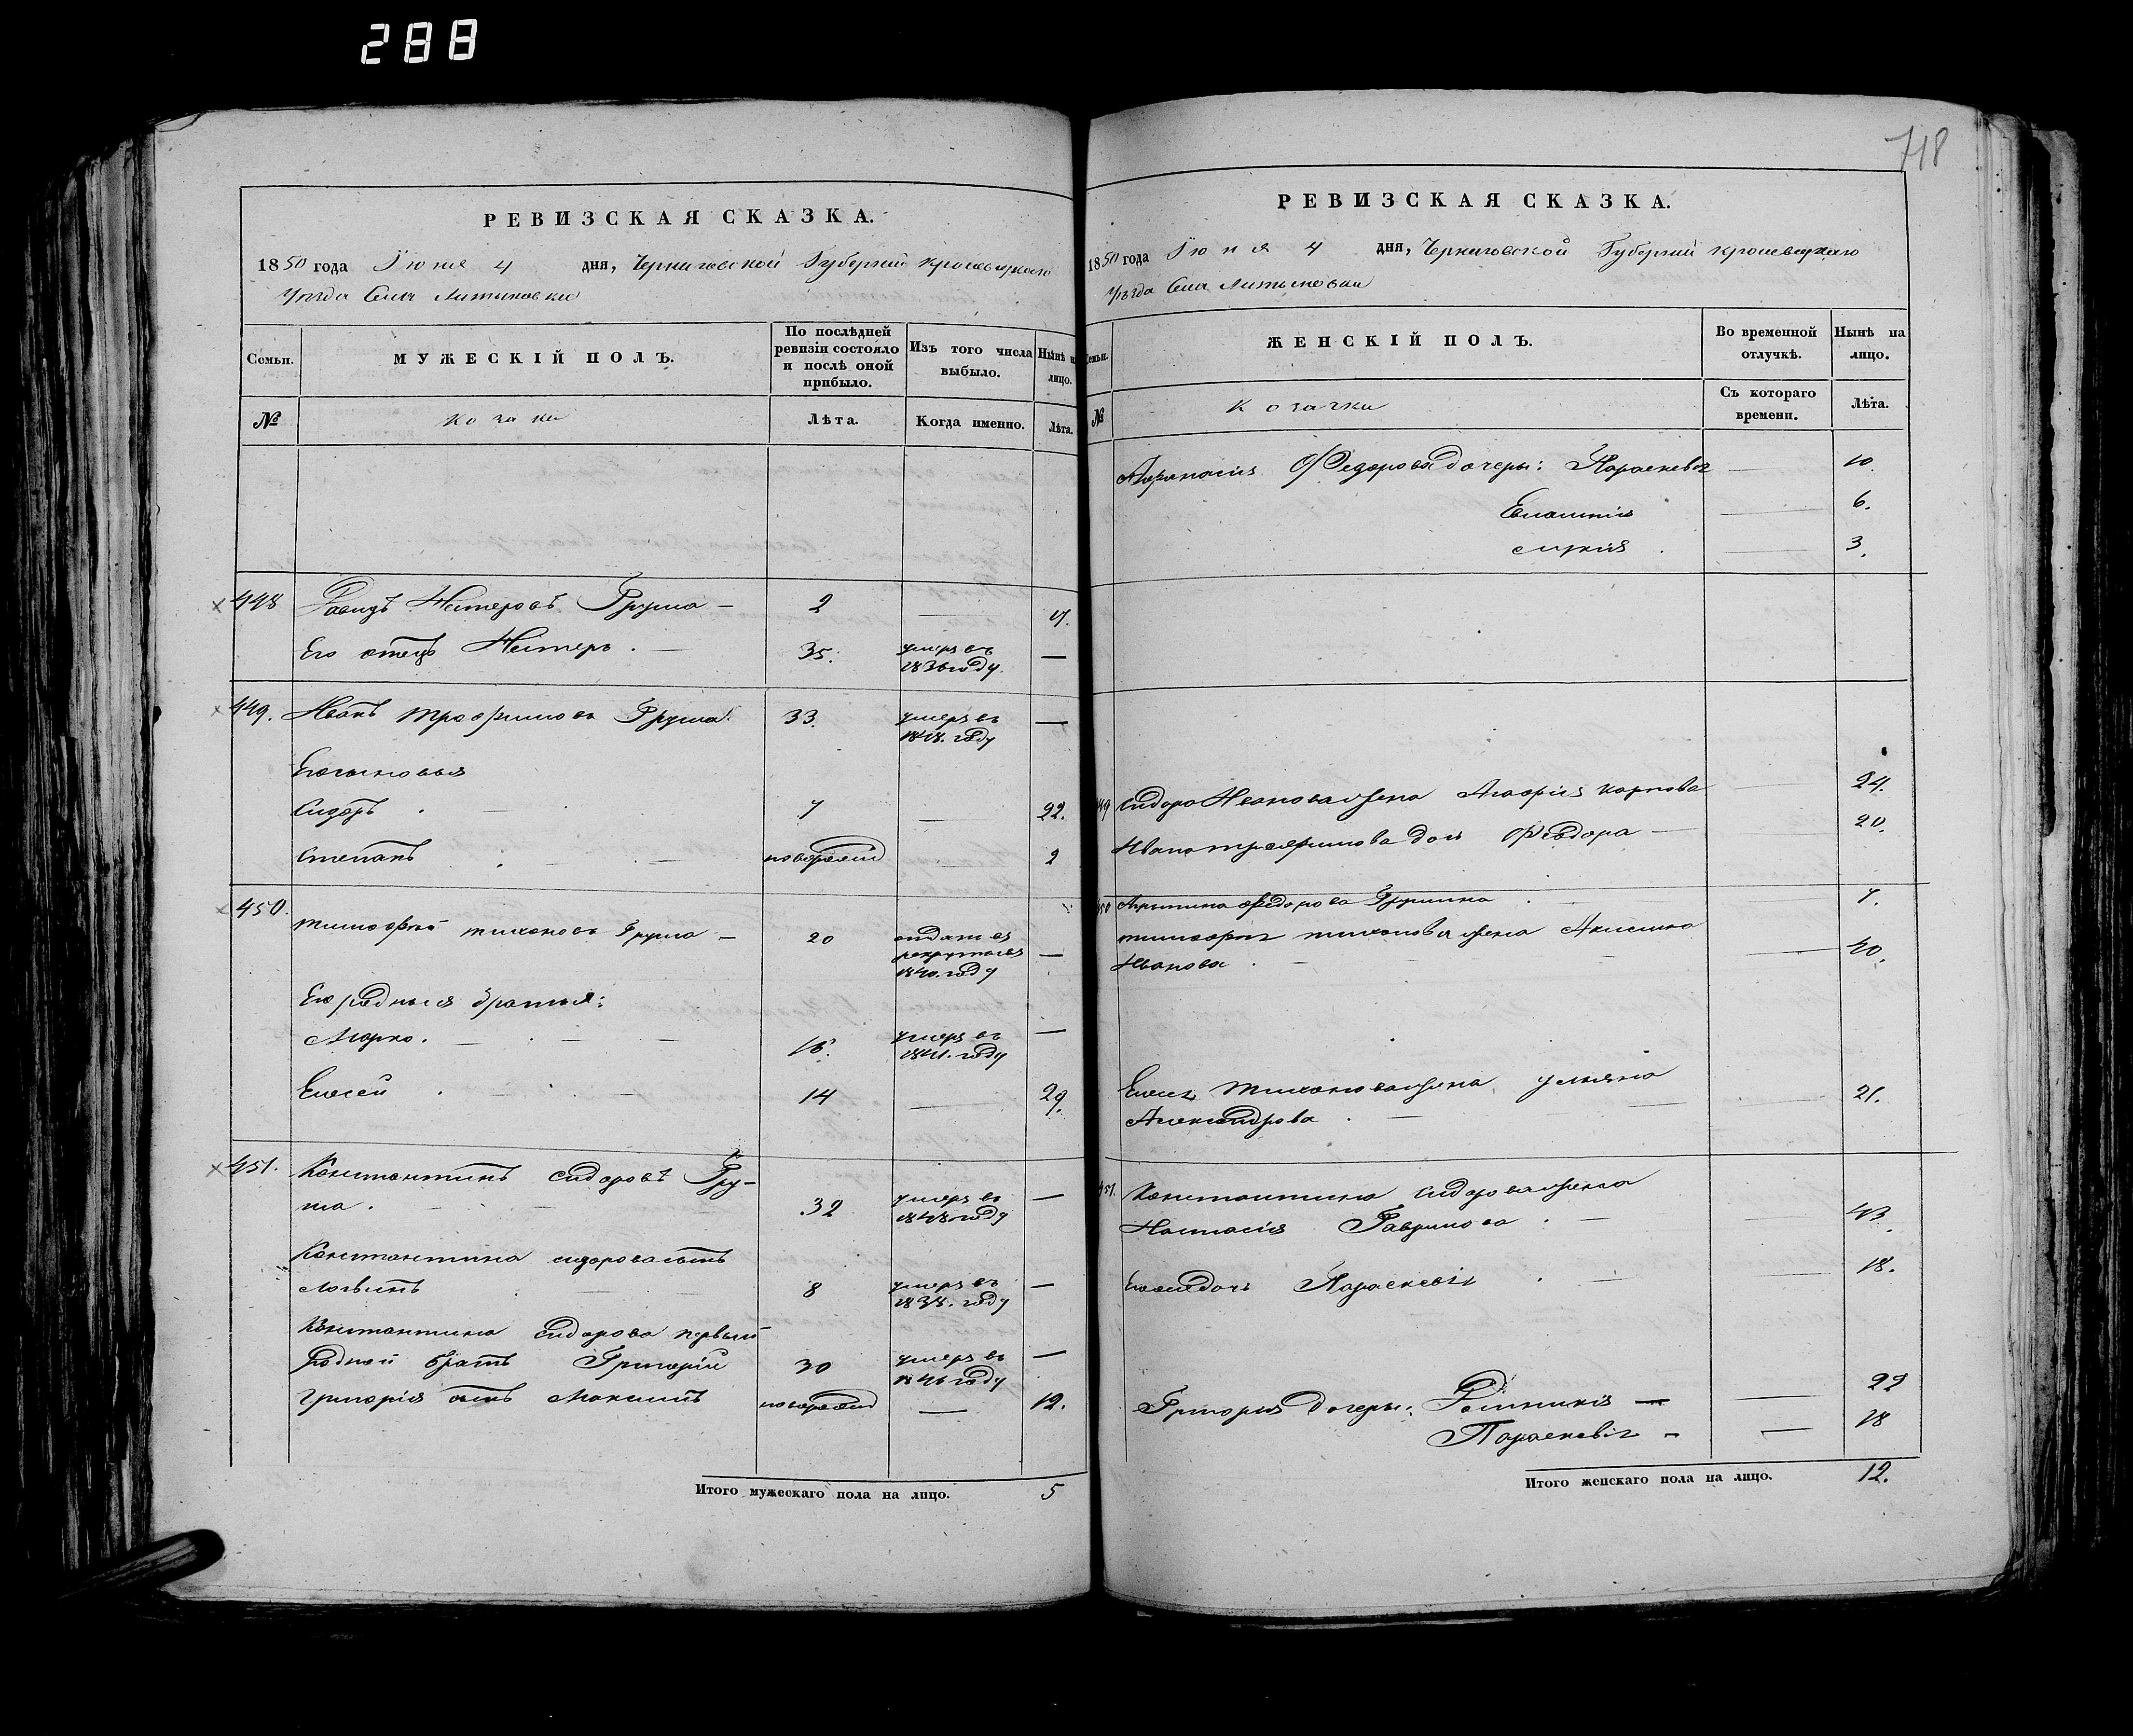 288
718
РЕВИЗСКАЯ СКАЗКА.
1850 года Іюня 4 дня, Черниговской Губерніи Кролевецкаго
Уѣзда Села Литвиновки
Семьи.
МУЖЕСКІЙ ПОЛЪ.
По послѣдней ревизіи состояло и послѣ оной прибыло.
Изъ того числа выбыло.
Нынѣ на лицо.
№
Козаки
Лѣта.
Когда именно.
Лѣта.
448 Нестеровъ Груша — 2 —
Его отецъ Нестеръ . — 35. умеръ въ 1836 году. —
449. Иванъ Трофимовъ Груша 33. умеръ въ 1848. году —
Его сыновья
Сидоръ . 7 — 22.
Степанъ . — новорожд — 2
450. Тимофей Тихоновъ Груша — 20 отданъ въ рекруты въ 1840. году —
Его родныя братья:
Марко. — 16. умеръ въ 1841. году —
Елесей . — 14 — 29.
451. Константинъ Сидоровъ Гру-
ша . 32 умеръ въ 1848 году —
Константина Сидорова сынъ
Логвинъ 8 умеръ въ 1838. году —
Константина Сидорова первый
родной братъ Григорій 30 умеръ въ 1846 году —
Григорія сынъ Максимъ новорожд — 12.
Итого мужескаго пола на лицо. 5
РЕВИЗСКАЯ СКАЗКА.
1850 года Іюня 4 дня, Черниговской Губерніи Кролевецкаго
Уѣзда Села Литвиновки
Семьи.
ЖЕНСКІЙ ПОЛЪ.
Во временной отлучкѣ.
Нынѣ на лицо.
№
Козачки
Съ котораго времени.
Лѣта.
Афанасія Федорова дочери: Параскевія — 10.
— 6.
— 3.
449 Сидора Иванова жена Агафія Карпова — 24.
Ивана Трофимова дочь Феодора — 20.
450 Федорова Грушина . — 7.
Тимофея Тихонова жена Акилина
Иванова . — 40.
Елесея Тихонова жена Ульяна
Александрова . — 21.
451. Константина Сидорова жена
Настасія Гаврилова . — 43.
Его дочь Параскевія . — 18.
Григорія дочери: — 22
Параскевія — 18
Итого женскаго пола на лицо. 12.